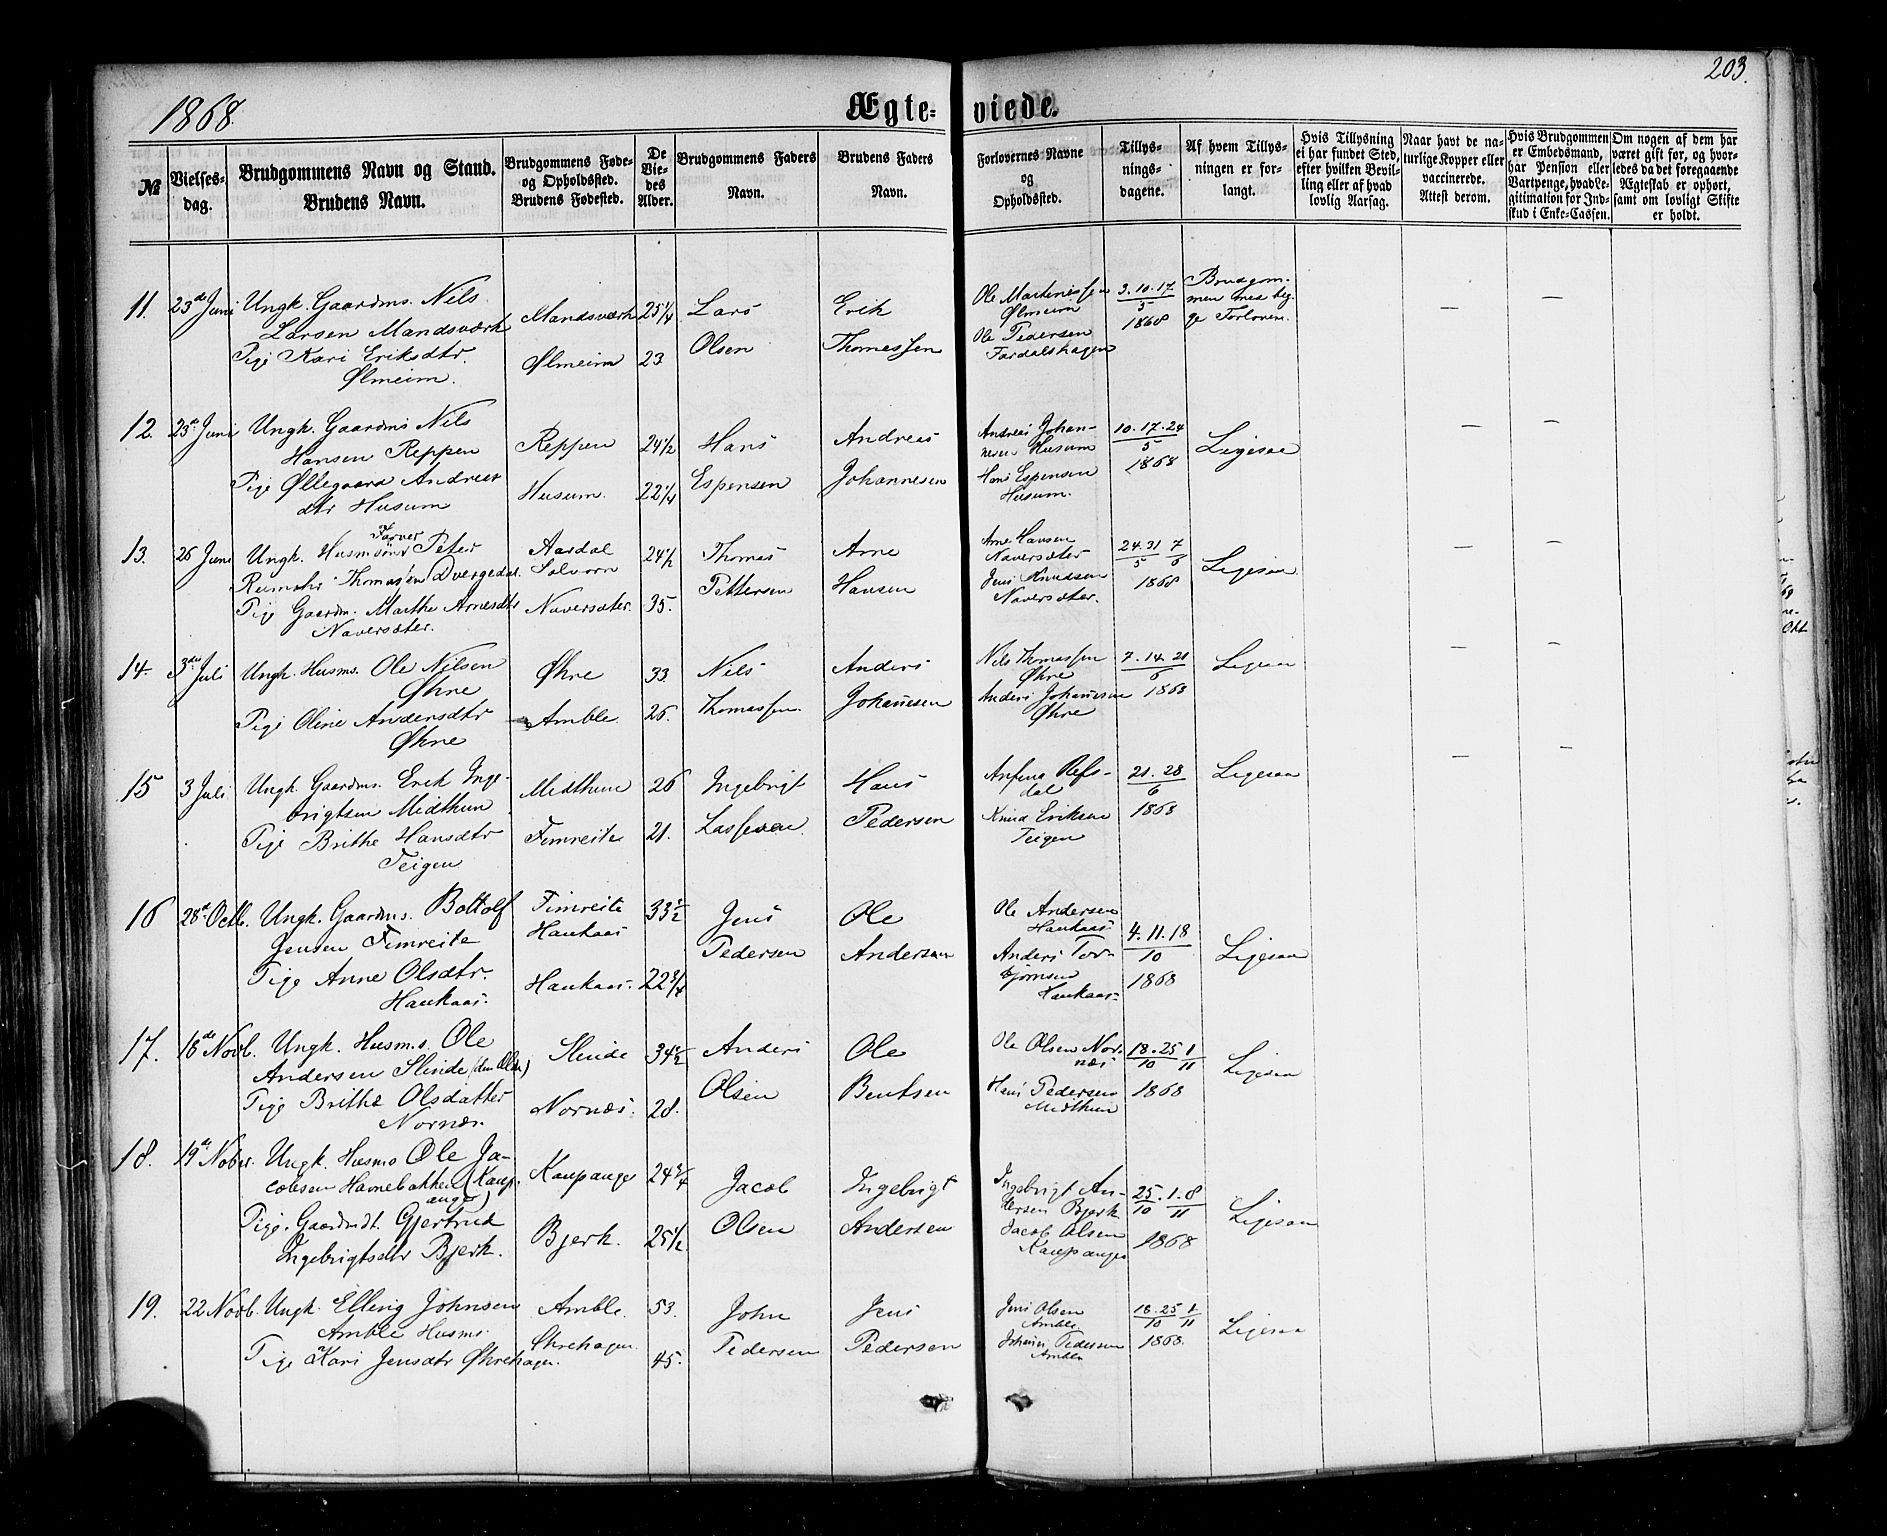 203.
1868.
Ægte- viede.
№
Vielses-
dag.
Brudgommens Navn og Stand.
Brudens Navn.
Brudgommens Føde-
og Opholdssted.
Brudens Fødested.
De
Vie-
des
Alder.
Brudgommens Faders
Navn.
Brudens Faders
Navn.
Forlovernes Navne
og
Opholdssted.
Tillys-
nings-
dagene.
Af hvem Tillys-
ningen er for-
langt.
Hvis Tillysning
ei har fundet Sted,
efter hvilken Bevil-
ling eller af hvad
lovlig Aarsag.
Naar havt de na-
turlige Kopper eller
vaccinerede.
Attest derom.
Hvis Brudgommen
er Embedsmand,
har Pension eller
Vartpenge, hvad Le-
gitimation for Ind-
skud i Enke-Cassen.
Om nogen af dem har
været gift før, og hvor-
ledes da det foregaaende
Ægteskab er ophørt,
samt om lovligt Skifte
er holdt.
11. 23de Juni Ungk. Gaardms. Nils
Larsen Mandsværk
Pige Kari Eriksdtr
Ølmeim.
Mandsværk
Ølmeim
25 1/4
23
Lars
Olsen
Erik
Thomessen
Ole Martinessen
Ølmeim
Ole Pedersen
Fardalshagen
3. 10. 17
5
1868
Brudgom-
men med beg-
ge Forlovere.
— —
12. 23de Juni Ungk. Gaardms Nils
Hansen Reppen
Pige Øllegaard Andreas
dtr Husum
Reppen
Husum.
24 1/2
22 1/4
Hans
Espensen
Andreas
Johannesen
Andreas Johan-
nesen Husum
Hans Espensen
Husum.
10. 17. 24
5
1868
Ligesaa
— —
13. 26 Juni Farver
Ungk. Husmsøns Peter
Reimert Thomassen Dvergedal.
Pige Gaardm. Marthe Arnesdtr
Naversæter.
Aardal
Solvorn
Naversæter.
24 1/2
35.
Thomas
Pettersen
Arne
Hansen
Arne Hansen
Naversæter
Jens Knudsen
Naversæter.
24. 31 7
5 6
1868
Ligesaa
— —
14. 3de Juli Ungk. Husms. Ole Nilsen
Øhre
Pige Oline Andersdtr
Øhre
Øhre
Amble.
33.
26.
Nils
Thomassen.
Anders
Johannesen
Nils Thomassen
Øhre
Anders Johannesen
Øhre
7. 14. 21
6
1868
Ligesaa
— —
15 3 Juli Ungk. Gaardms. Erik Inge-
brigtsen Midthun
Pige Brithe Hansdtr
Teigen
Midthun
Fimreite
26
21.
Ingebrigt
Lassesen.
Hans
Pedersen
Anfend Refs-
dal
Knud Eriksen
Teigen
21. 28
6
1868
Ligesaa
— —
16 28de Octb. Ungk. Gaardms. Bottolf
Jensen Fimreite
Pige Anne Olsdtr.
Haukaas.
Fimreite
Haukaas
Haukaas.
33 1/2
22 3/4
Jens
Pedersen
Ole
Andersen
Ole Andersen
Haukaas
Anders Tor-
bjørnsen
Haukaas
4. 11. 18
10
1868
Ligesaa
17. 18de Novb. Ungk. Husms. Ole
Andersen Slinde (den Ældre)
Pige Brithe Olsdatter
Nornæs.
Slinde
Nornæs.
34 1/2
28.
Anders
Olsen
Ole
Bentsen
Ole Olsen Nor-
næs
Hans Pedersen
Midthun
18. 25 1
10 11
1868
Ligesaa
18. 19de Nobr. Ungk. Husms Ole Ja-
cobsen Havnebakken (Kaup-
anger)
Pige. Gaardmdt. Gjertrud
Ingebrigtsdtr Bjerk.
Kaupanger
Bjerk.
24 3/4
25 1/2
Jacob
Olsen
Ingebrigt
Andersen
Ingebrigt An-
dersen Bjerk
Jacob Olsen
Kaupanger
25. 1. 8
10 11
1868
Ligesaa
19. 22 Novb. Ungk. Elling Johnsen
Amble Husms.
Pige Kari Jensdtr Øhrehagen.
Amble.
Øhrehagen.
53.
45.
John
Pedersen
Jens
Pedersen
Jens Olsen
Amble.
Johannes Pedersen
Amble
18. 25 1
10 11
1868.
Ligesaa